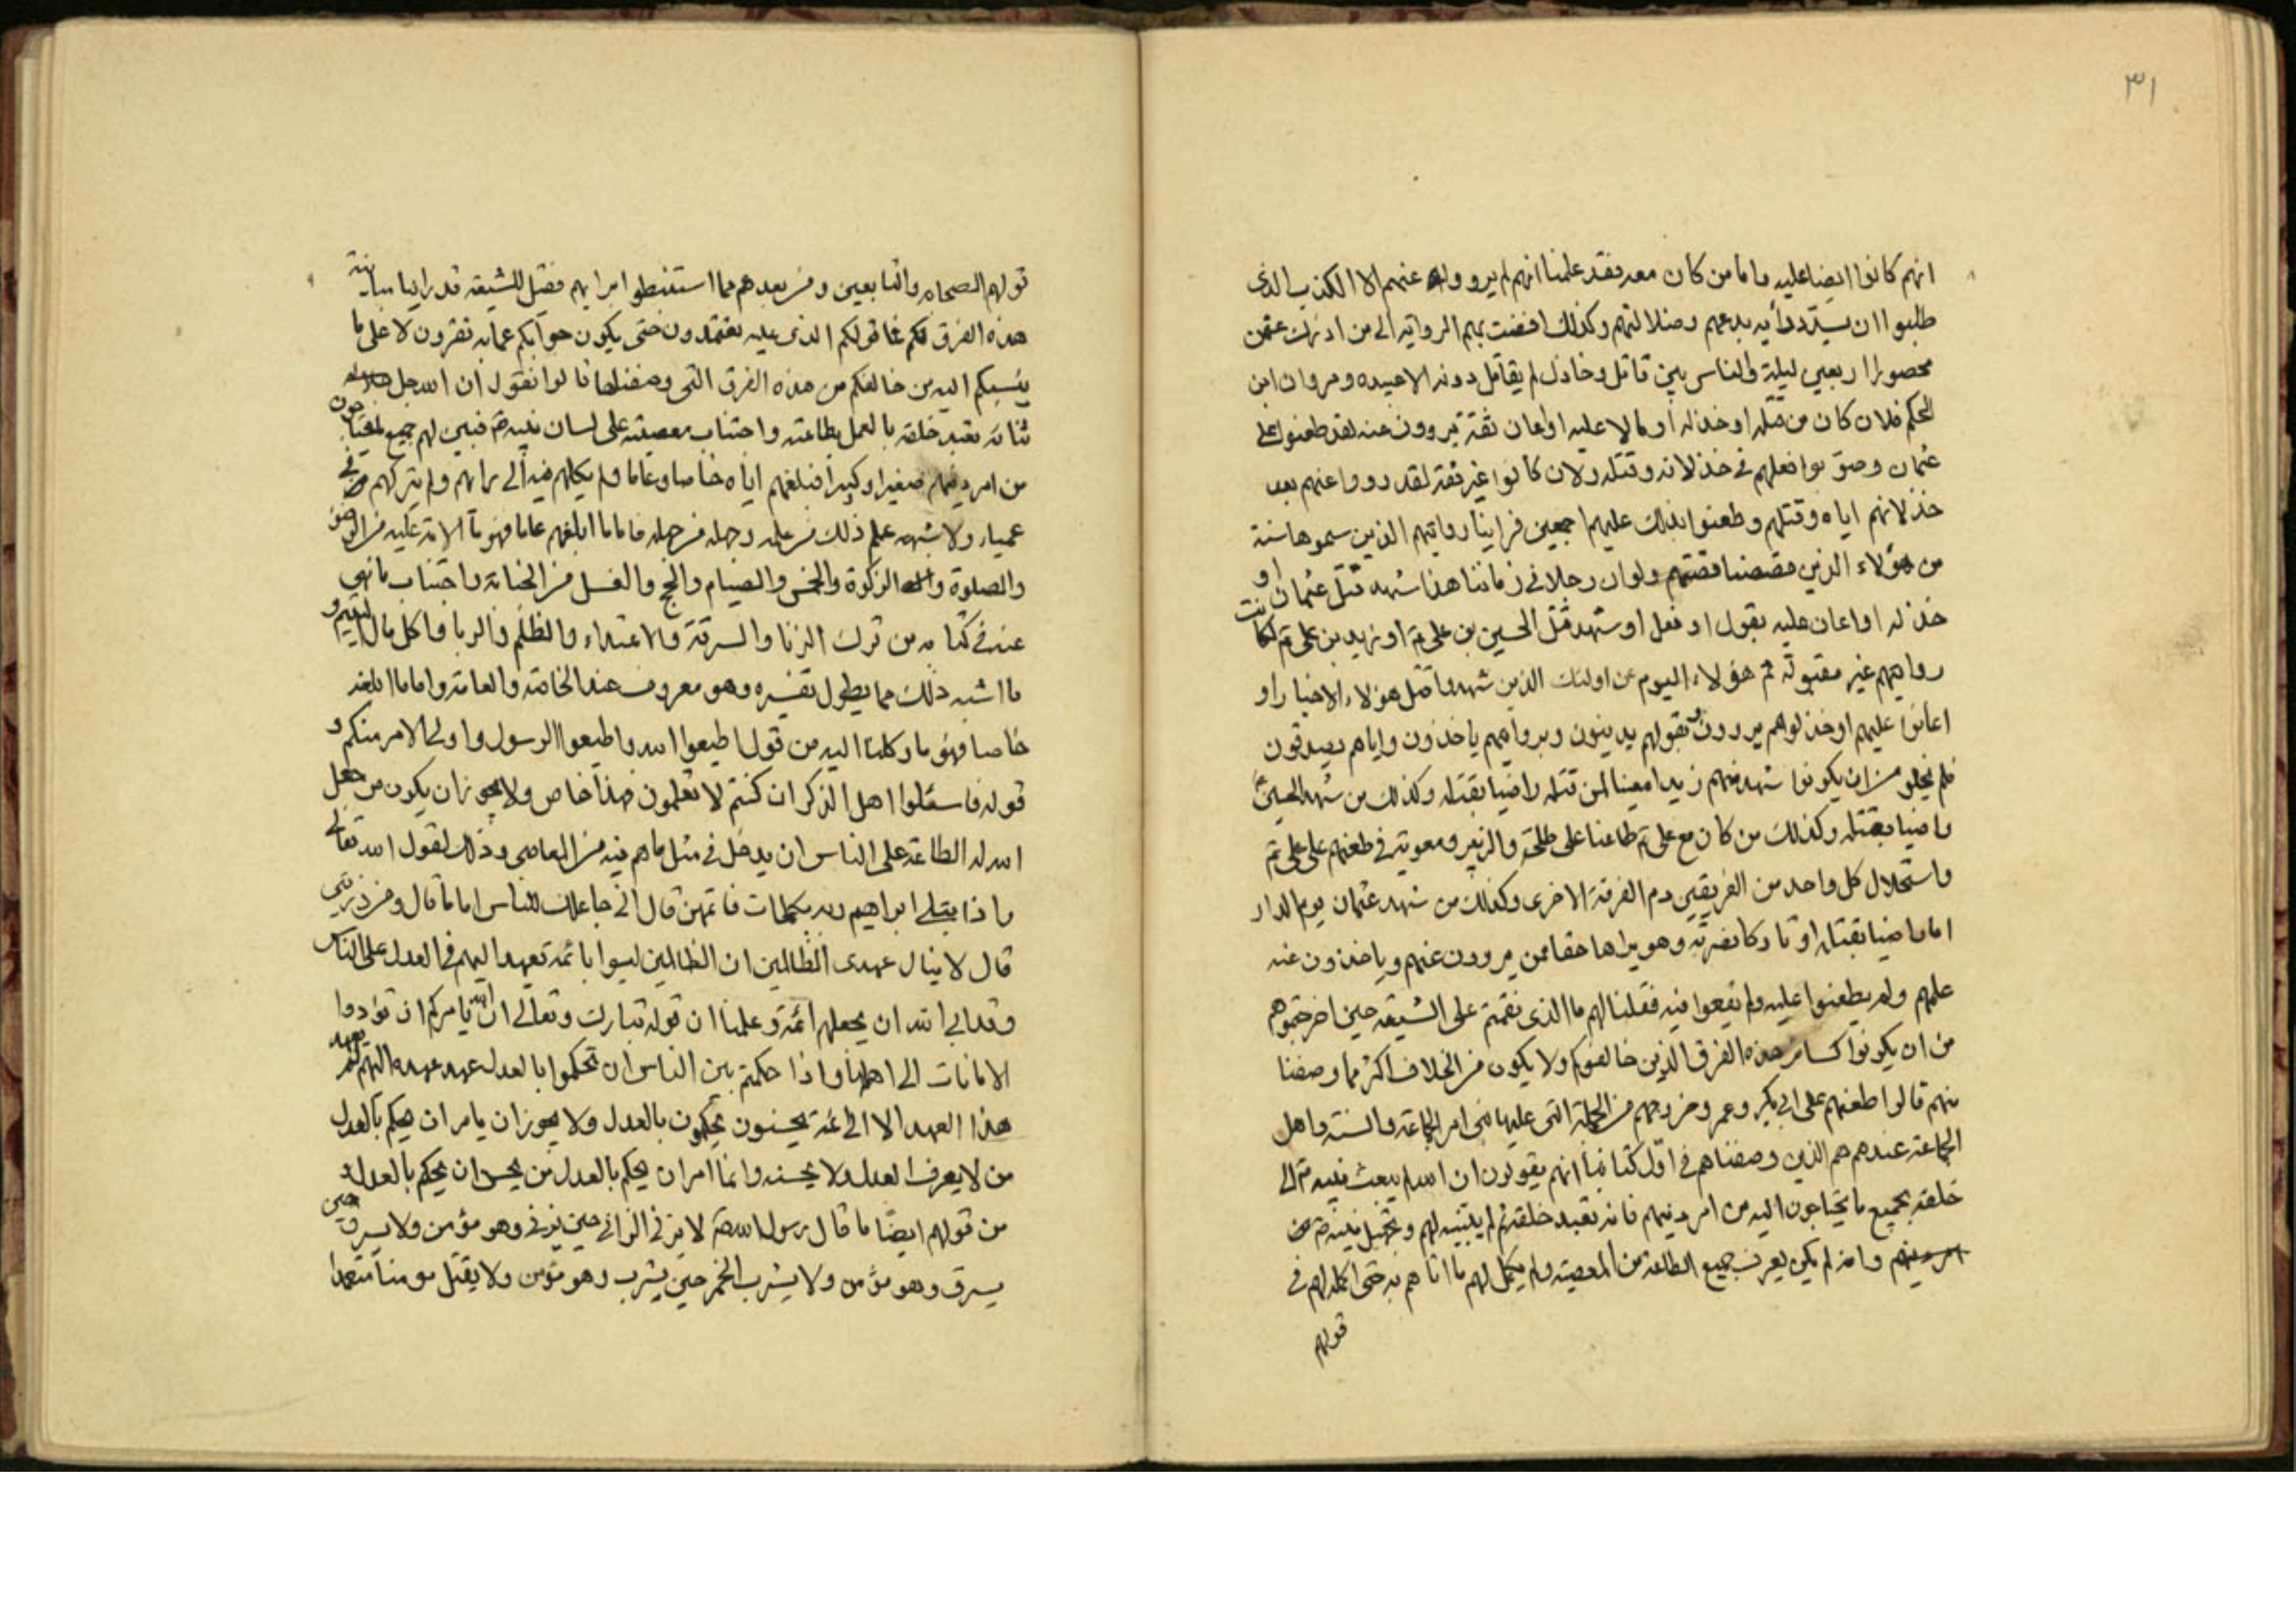 ٣١
انهم كانوا ايضا عليه واما من كان معه فقد علمنا انهم لم يرووا عنهم الا الكذب الذى
طلبوا ان يسددوا به بدعهم وضلالتهم وكذلك افضت بهم الرواية الى من ادرك عثمن
محصورا اربعين ليلة والناس بين قاتل وخاذل لم يقاتل دونه الا عبيده ومروان ابن
الحكم فلان كان من قتله او خذله او مالا عليه او اعان ثقة يروون عنه لقد طعنوا على
عثمان وصوبوا فعلهم فى خذلانه وقتله ولان كانوا غير ثقة لقد رووا عنهم بعد
خذلانهم اياه وقتلهم وطعنوا بذلك عليهم اجمعين فراينا روايتهم الذين سموها سنة
من هؤلاء الذين قصصنا قصتهم ولو ان رجلا فى زماننا هذا شهد قتل عثمان او
خذله او اعان عليه بقول او فعل او شهد قتل الحسين بن على او زيد بن على لكانت
روايتهم غير مقبولة ثم هؤلاء اليوم عن اولئك الذين شهدوا قتل هؤلاء الاخيار او
اعانوا عليهم او خذلوهم يروون وبقولهم يدينون وبرواهم ياخذون واياهم يصدقون
فلم يخلو من ان يكونوا شهد منهم زيدا معينا لمن قتله راضيا بقتله وكذلك من شهد الحسين
راضيا بقتله وكذلك من كان مع على طاعنا على طلحة والزبير ومعوية فى طعنهم على على
واستحلال كل واحد من الفريقين دم الفرقة الاخرى وكذلك من شهد عثمان يوم الدار
اما راضيا بقتله او تاركا نصرته وهو يراها حقا ممن يروون عنهم وياخذون عنه
علمهم ولم يطعنوا عليه ولم يقعوا فيه فقلنا لهم ما الذى نقمتم على الشيعة حين اخرجتموهم
من ان يكونوا كسائر هذه الفرق الذين خالفوكم ولا يكون من الخلاف اكثر مما وصفنا
منهم قالوا طعنهم على ابى بكر وعمر وخروجهم من الجملة التى عليها نحن امر الجماعة والسنة واهل
الجماعة عندهم هم الذين وصفناهم فى اول كتابنا انهم يقولون ان الله لم يبعث نبيه الى
خلقه بجميع ما يحتاجون اليه من امر دينهم فانه تعبد خلقه بما لم يبينه لهم
وانه لم يكن يعرف جميع الطاعة من المعصية ولم يكمل لهم ما اتاهم به حتى اكمله لهم فى
قولهم
قولهم الصحابه والتابعين ومن بعدهم مما استنبطوا امرا بهم فقيل للشيعة قد راينا مباينة
هذه الفرق لكم فما قولكم الذى عليه تعتمدون حتى يكون جوابكم عما به تقرون لا على ما
ينسبكم اليه من خالفكم من هذه الفرق التى وصفناها قالوا نقول ان الله جل جلاله
ثناؤه تعبد خلقه بالعمل بطاعته واجتناب معصيته على لسان نبيه فبين لهم جميع ما يحتاجون
من امر دينهم صغيرا وكبيرا فبلغهم اياه خاصا وعاما ولم يكلهم فيه الى رايهم ولم يتركهم فى
عمياء ولا شبهه علم ذلك من علمه وجهله من جهله فاما ما ابلغهم عاما فهو ما الامة عليه من الوضو
والصلوة والزكوة والخمس والصيام والحج والغسل من الجنابة واجتناب ما نهى
عنه فى كتابه من ترك الزنا والسرقة والاعتداء والظلم والربا واكل مال اليتيم و
ما اشبه ذلك مما يطول تفسيره وهو معروف عند الخاصة والعامة واما ما ابلغه
خاصا فهو ما وكلنا اليه من قول اطيعوا الله واطيعوا الرسول واولى الامر منكم و
قوله فاسئلوا اهل الذكر ان كنتم لا تعلمون فهذا خاص ولا يجوز ان يكون من جعل
الله له الطاعة على الناس ان يدخل فى مثل ما هم فيه من المعاصى وذلك لقول الله تعالى
واذا بتلى ابراهيم ربه بكلمات فاتمهن قال انى جاعلك للناس اماما قال ومن ذريتى
قال لا ينال عهدى الظالمين ان الظالمين ليسوا بائمة تعهد اليهم فى العدل على الناس
وقد ابى الله ان يجعلهم ائمة وعلمنا ان قوله تبارك وتعالى ان الله يامركم ان تؤدوا
الامانات الى اهلها واذا حكمتم بين الناس ان تحكموا بالعدل عهد عهده اليهم لم يعهد
هذا العهد الا الى ائمة يحسنون يحكمون بالعدل ولا يجوز ان يامر ان يحكم بالعدل
من لا يعرف العدل ولا يحسنه وانما امر ان يحكم بالعدل من يحسن ان يحكم بالعدل
من قولهم ايضا ما قال رسول الله لا يزنى الزانى حين يزنى وهو مؤمن ولا يسرق حين
يسرق وهو مؤمن ولا يشرب الخمر حين يشرب وهو مؤمن ولا يقتل مومنا متعمدا